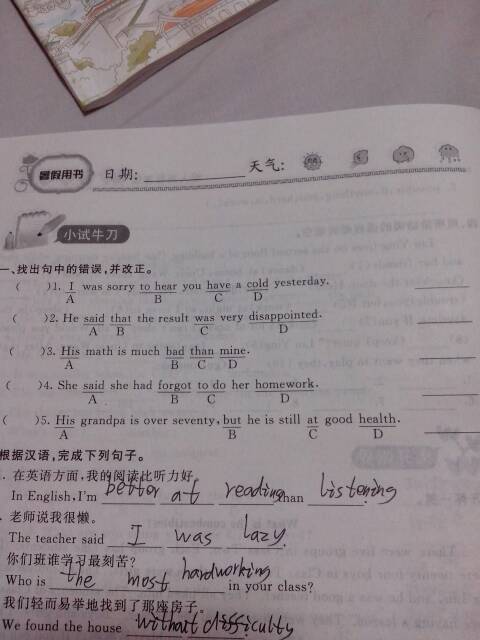 暑假用书 日期: 天气:
小试牛刀
一、找出句中的错误,并改正。
( )1. I was sorry to hear you have a cold yesterday.
A B C D
( )2. He said that the result was very disappointed.
A B C D
( )3. His math is much bad than mine.
A B C D
( )4. She said she had forgot to do her homework.
A B C D
( )5. His grandpa is over seventy, but he is still at good health.
A B C D
根据汉语,完成下列句子。
. 在英语方面,我的阅读比听力好。
In English, I'm better at reading than listening
. 老师说我很懒。
The teacher said I was lazy.
你们班谁学习最刻苦?
Who is the most hardworking in your class?
我们轻而易举地找到了那座房子。
We found the house without difficulty